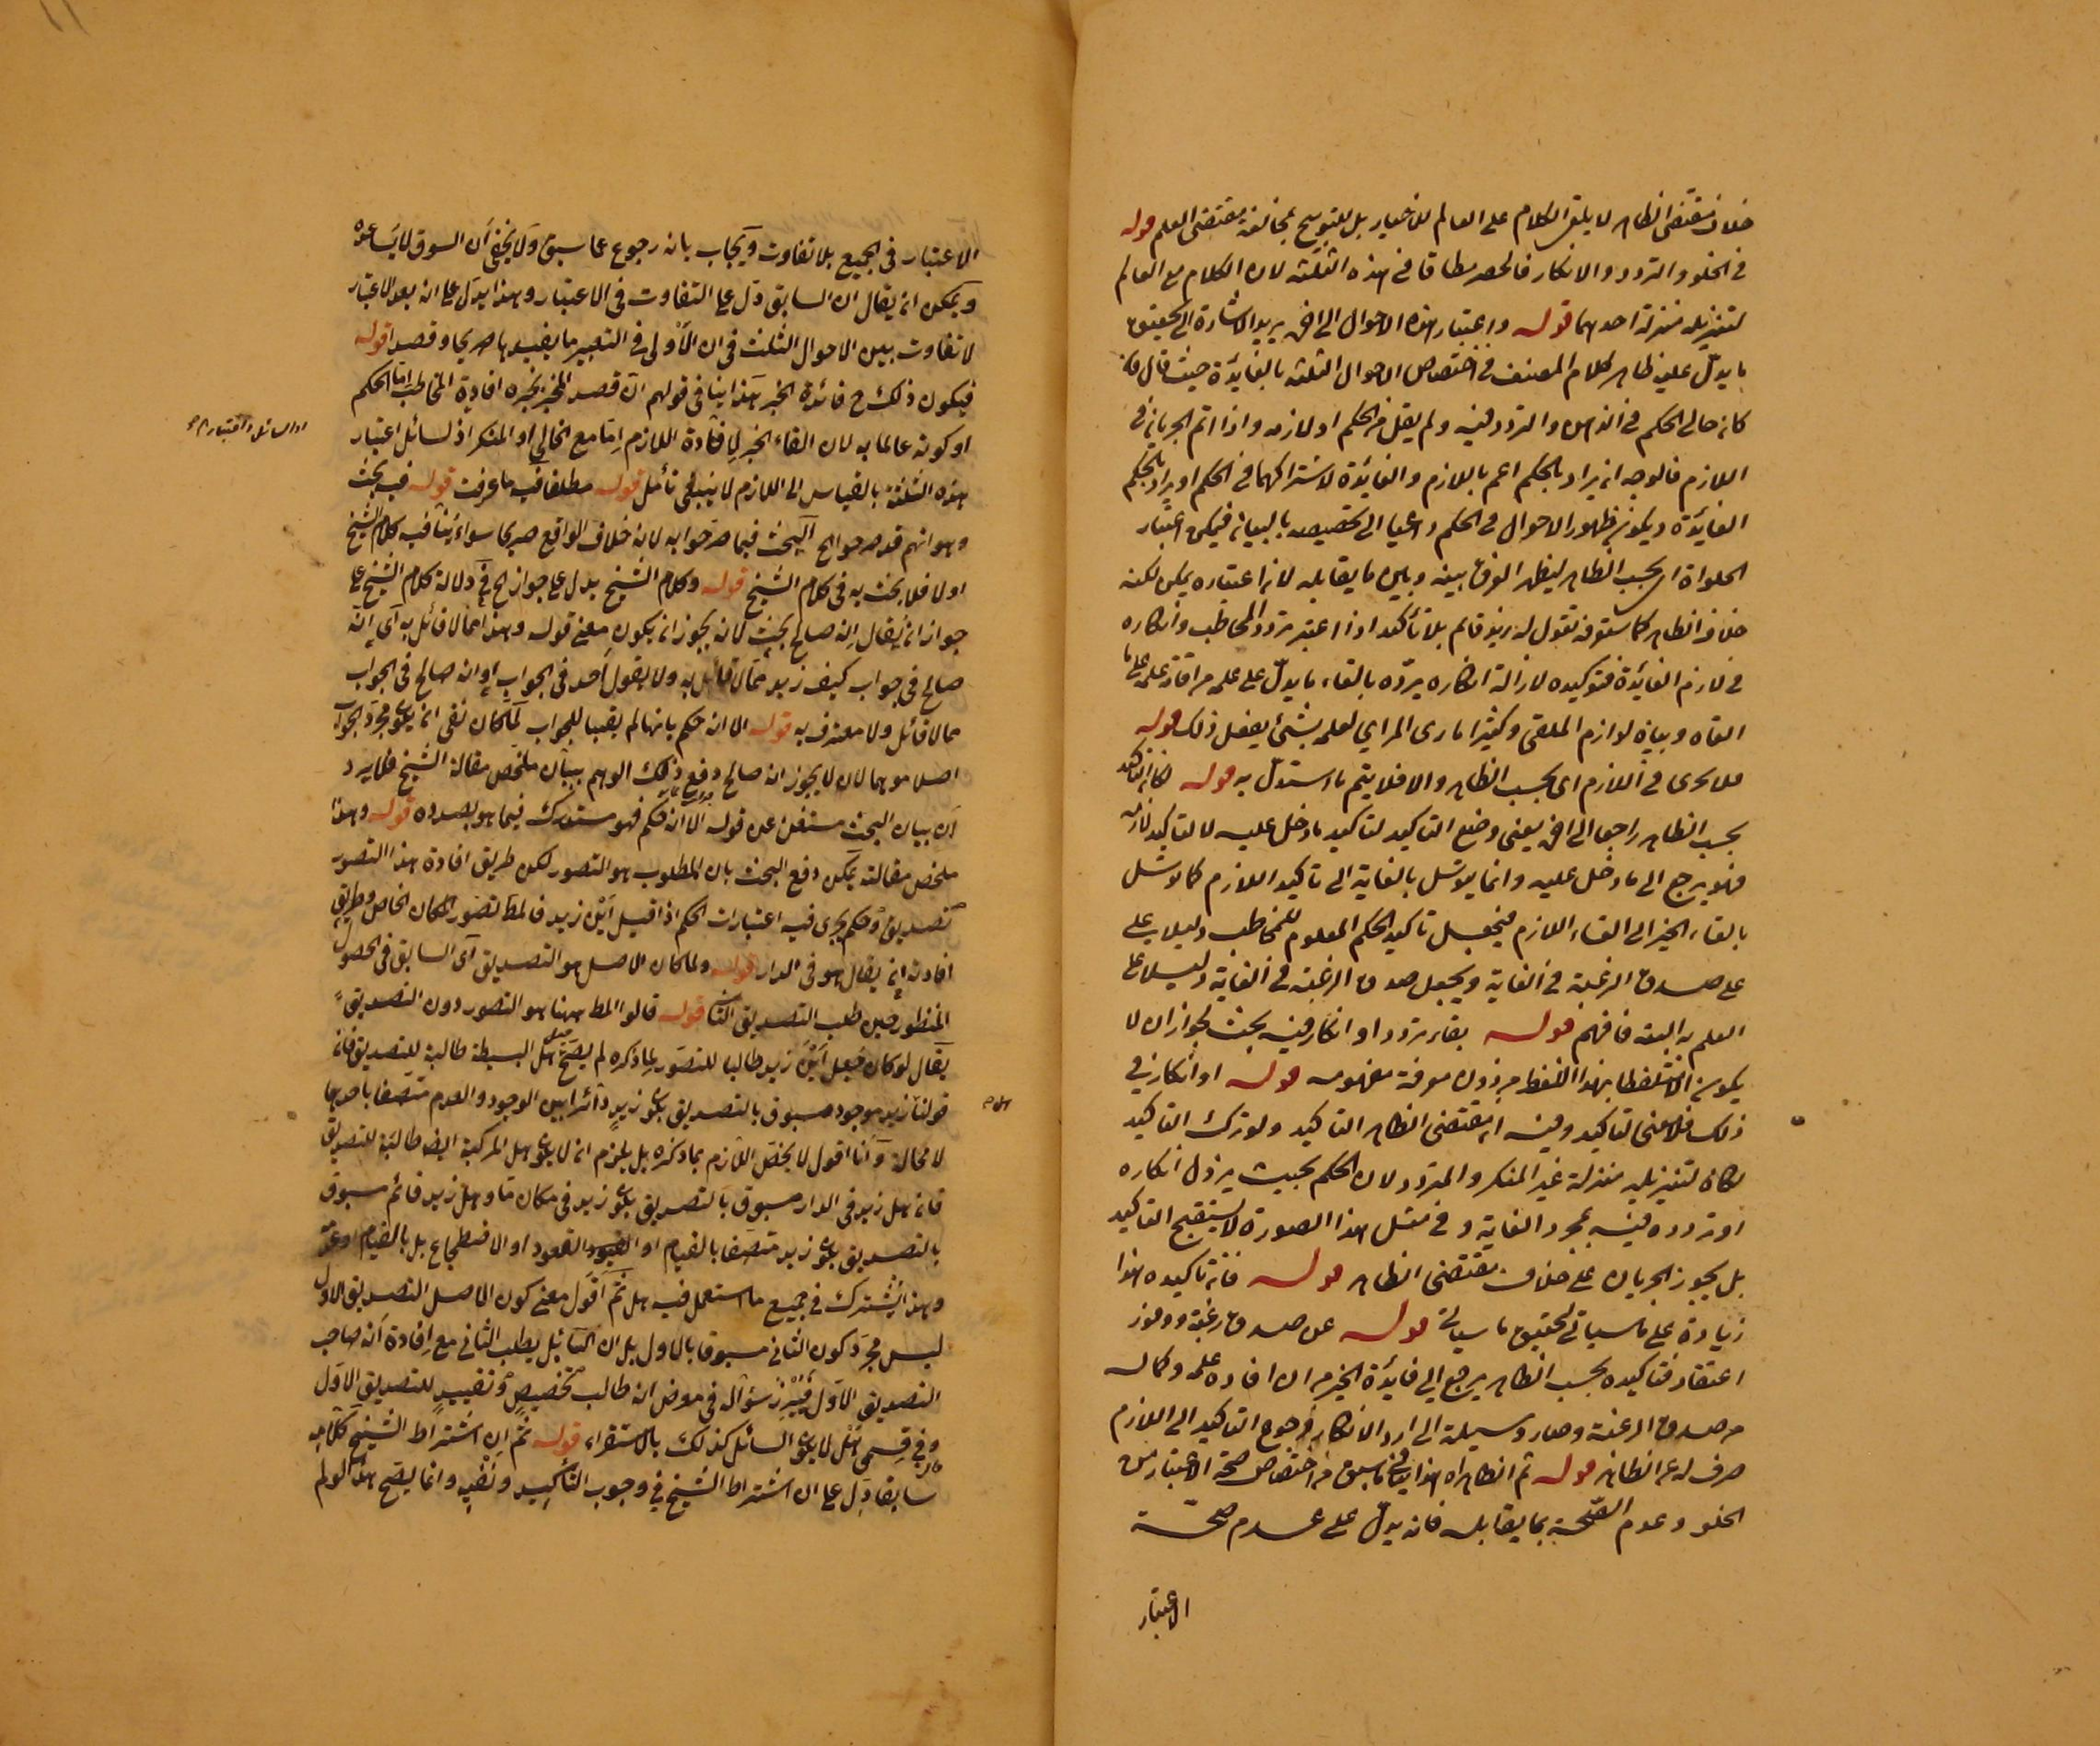 خلاف مقتضى الظاهر لا يلقى الكلام على العالم للاخبار بل للتوبيخ بمخالفة مقتضى العلم قوله
في الخلو والتردد والانكار فالحصر مطلقا في هذه الثلثة لان الكلام مع العالم
لتنزيله منزلة احدهما قوله واعتبار هذه الاحوال الى اخره يريد الاشارة الى تحقيق
ما يدل عليه ظاهر كلام المصنف في اختصاص الاحوال الثلثة بالفائدة حيث قال فان
كان خالى الحكم في الذهن والتردد فيه ولم يقل من الحكم او لازمه واذا تم الجريان في
اللازم فالوجه ان يراد بالحكم اعم باللازم والفائدة لاشتراكهما في الحكم او يراد بالحكم
الفائدة ويكون ظهور الاحوال في الحكم داعيا الى تخصيصه بالبيان فيكن اعتبار
الخلو اه اى بحسب الظاهر ليظهر الفرق بينه وبين ما يقابله لان اعتباره يمكن لكنه
خلاف الظاهر كما ستعرفه تقول له زيد قائم بلا تأكيد اذا اعتبر تردد المخاطب وانكاره
في لازم الفائدة فتوكيده لازالة انكاره يرده بالقاء ما يدل على علمه
القاه وبيان لوازم الملقى وكثيرا ما رى المراي لعله بشئ يفعل ذلك قوله
فلا يجرى في اللازم اى بحسب الظاهر والا فلا يتم ما استدل به قوله فكان التاكيد
بحسب الظاهر راجعا الى اخره يعنى وضع التاكيد لتاكيد ما دخل عليه لا لتاكيد لازمه
فهو يرجع الى ما دخل عليه وانما يتوسل بالغاية الى تاكيد اللازم كما توسل
بالقاء الخبر الى القاء اللازم فيجعل تاكيد الحكم المعلوم للمخاطب دليلا على
على صدق الرغبة في الغاية ويجعل صدق الرغبة في الغاية دليلا على
العلم به البتة فافهم قوله بقاء تردد او انكار فيه بحث لجواز ان لا
يكون التلفظ بهذا اللفظ من دون معرفة مفهومه قوله او انكار في
ذلك فلا معنى لتاكيد وفيه ان مقتضى الظاهر التاكيد ولو ترك التاكيد
لكان لتنزيله منزلة غير المنكر والمتردد لان الحكم بحيث يزول انكاره
او تردده فيه بمجرد الغاية وفي مثل هذا الصورة لا يستقبح التاكيد
بل يجوز الجريان على خلاف مقتضى الظاهر قوله فان تاكيده هذا
زيادة على ما سياتى تحقيق ما سياتى قوله عن صدق رغبة ووفور
اعتقاد فتاكيده بحسب الظاهر يرجع الى فائدة الخبر من ان افاده علمه وكمال
من صدق الرغبة وصار وسيلة الى ارد الانكار فرجوع التاكيد الى اللازم
صرف له عن الظاهر قوله ثم الظاهر اه هذا ينافى ما سبق من اختصاص صحة الاعتبار من
الخلو وعدم الصحة بما يقابله فانه يدل على عدم صحة
الاعتبار
الاعتبار في الجميع بلا تفاوت ويجاب بانه رجوع عما سبق ولا يخفى ان السوق لا يساعده
ويمكن ان يقال ان السابق دل على التفاوت في الاعتبار وهذا يدل على انه بعد الاعتبار
لا تفاوت بين الاحوال الثلث في ان الاولى في التعبير ما يفيدها صريحا وقصدا قوله
فيكون ذلك ح فائدة الخبر هذا ينافى قولهم ان قصد المخبر بخبره افادة المخاطب اما الحكم
او كونه عالما به لان القاء الخبر لافادة اللازم اما مع الخالى او المنكر اذ لسائل اعتبار
او السائل واعتبار
هذه الثلثة بالقياس الى اللازم لا ينبغى تأمل قوله مطلقا فيه ما عرفت قوله فيه بحث
وهو انهم قد صرحوا الخ البحث فيما صرحوا به لانه خلاف الواقع صريحا سواء ينافيه كلام الشيخ
او لا فلا بحث به في كلام الشيخ قوله وكلام الشيخ يدل على جواز الخ في دلالة كلام الشيخ على
جواز ان يقال انه صالح بحث لانه يجوز ان يكون معنى قوله وهذا مما لا قائل به اى انه
صالح في جواب كيف زيد مما لا قائل به ولا يقول احد في الجواب او انه صالح في الجواب
مما لا قائل ولا معترف به قوله الا انه حكم بانها لم يقعا للجواب لما كان نفى ان يكون مجرد الجواب
اصلا موهما لان لا يجوز انه صالح دفع ذلك الوهم ببيان ملخص مقالة الشيخ فلا يرد
ان بيان البحث مستغن عن قوله الا انه حكم فهو مستدرك فيما هو بصدده قوله وهذا
ملخص مقالته يمكن دفع البحث بان المطلوب هو التصور لكن طريق افادة هذا التصور
تصديق وحكم يجرى فيه اعتبارات الحكم اذا قيل اين زيد فالمط تصور المكان الخاص وطريق
افادته ان يقال هو في الدار قوله ولما كان الاصل هو التصديق اى السابق في الحصول
المنظور حين طلب التصديق الثانى قوله قالوا المط ههنا هو التصور دون التصديق
يقال لو كان فيعل اين زيد طالبا للتصور لما ذكره لم يصح جعل هل البسيطة طالبة للتصديق فان
قولنا زيد موجود مسبوق بالتصديق بكون زيد دائرا بين الوجود والعدم متصفا باحدهما
لا محالة وانا اقول لا يخص اللازم بما ذكره بل يلزم ان لا يكون هل المركبة ايضا طالبة للتصديق
فان هل زيد في الدار مسبوق بالتصديق بكون زيد في مكان ما وهل زيد قائم مسبوق
بالتصديق بكون زيد متصفا بالقيام او القعود او الاضطجاع بل بالقيام او عدمه
وهذا يشترك في جميع ما استعمل فيه هل ثم اقول معنى كون الاصل التصديق الاول
ليس مجرد كون الثانى مسبوقا بالاول بل ان السائل يطلب الثانى مع افادة انه صاحب
التصديق الاول فيبرز سؤاله في معرض انه طالب تخصيص وتقييد للتصديق الاول
وفي قسمى هل لا يكون السائل كذلك بالاستقراء قوله ثم ان اشتراط الشيخ كلامه
سابقا دل على ان اشتراط الشيخ في وجوب التأكيد ونفيه وانما يصح هذا لو لم